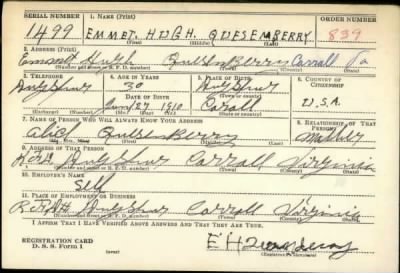 SERIAL NUMBER 1. NAME (Print) ORDER NUMBER
1499 EMMET. HUGH. QUESENBERRY 839
(First) (Middle) (Last)
2. ADDRESS (Print)
Emmet Hugh QuesenBerry Carroll Va
(Number and street or R. F. D. number) (Town) (County) (State)
3. TELEPHONE 4. AGE IN YEARS 5. PLACE OF BIRTH 6. COUNTRY OF CITIZENSHIP
30
DATE OF BIRTH
Jun 27 1910 U.S.A.
(Exchange) (Number) (Mo.) (Day) (Yr.) (Town) (County) (State or country)
7. NAME OF PERSON WHO WILL ALWAYS KNOW YOUR ADDRESS 8. RELATIONSHIP OF THAT PERSON
Alice QuesenBerry Mother
(Mr., Mrs., Miss) (First) (Middle) (Last)
9. ADDRESS OF THAT PERSON
Carroll Virginia
(Number and street or R. F. D. number) (Town) (County) (State)
10. EMPLOYER'S NAME
Self
11. PLACE OF EMPLOYMENT OR BUSINESS
Carroll Virginia
(Number and street or R. F. D. number) (Town) (County) (State)
I AFFIRM THAT I HAVE VERIFIED ABOVE ANSWERS AND THAT THEY ARE TRUE.
REGISTRATION CARD
D. S. S. Form 1
(Registrant's signature)